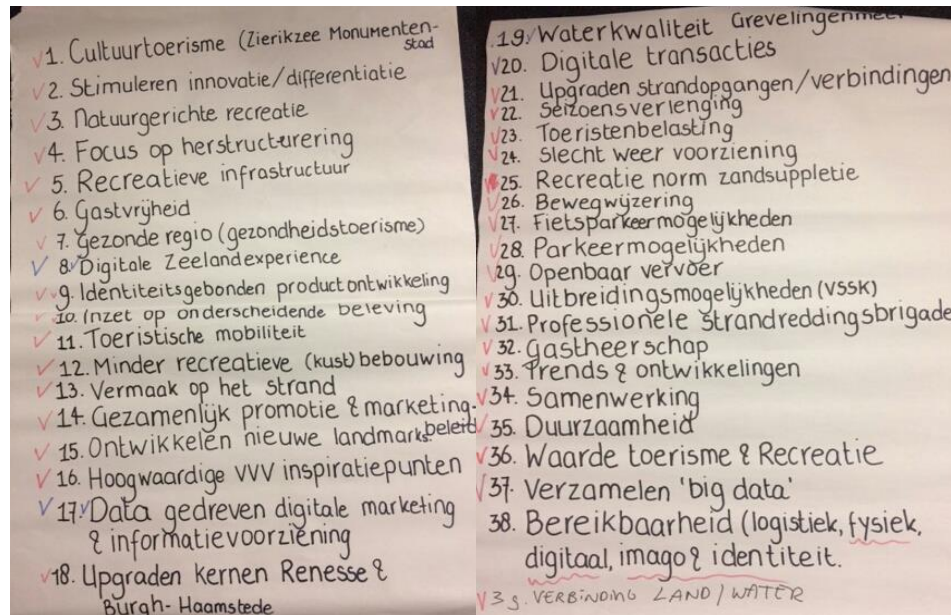 1. Cultuurtoerisme (Zierikzee Monumenten-
stad
2. Stimuleren innovatie/differentiatie
3. Natuurgerichte recreatie
4. Focus op herstructurering
5. Recreatieve infrastructuur
6. Gastvrijheid
7. Gezonde regio (gezondheidstoerisme)
8. Digitale Zeelandexperience
9. Identiteitsgebonden productontwikkeling
10. Inzet op onderscheidende beleving
11. Toeristische mobiliteit
12. Minder recreatieve (kust) bebouwing
13. Vermaak op het strand
14. Gezamenlijk promotie & marketing-
beleid
15. Ontwikkelen nieuwe landmarks
16. Hoogwaardige VVV inspiratiepunten
17. Data gedreven digitale marketing
& informatievoorziening
18. Upgraden kernen Renesse &
Burgh-Haamstede
19. Waterkwaliteit Grevelingenmeer
20. Digitale transacties
21. Upgraden strandopgangen/verbindingen
22. Seizoensverlenging
23. Toeristenbelasting
24. Slecht weer voorziening
25. Recreatie norm zandsuppletie
26. Bewegwijzering
27. Fietsparkeermogelijkheden
28. Parkeermogelijkheden
29. Openbaar vervoer
30. Uitbreidingsmogelijkheden (VSSK)
31. Professionele strandreddingsbrigade
32. Gastheerschap
33. Trends & ontwikkelingen
34. Samenwerking
35. Duurzaamheid
36. Waarde toerisme & Recreatie
37. Verzamelen 'big data'
38. Bereikbaarheid (logistiek, fysiek,
digitaal, imago & identiteit.
39. VERBINDING LAND/WATER